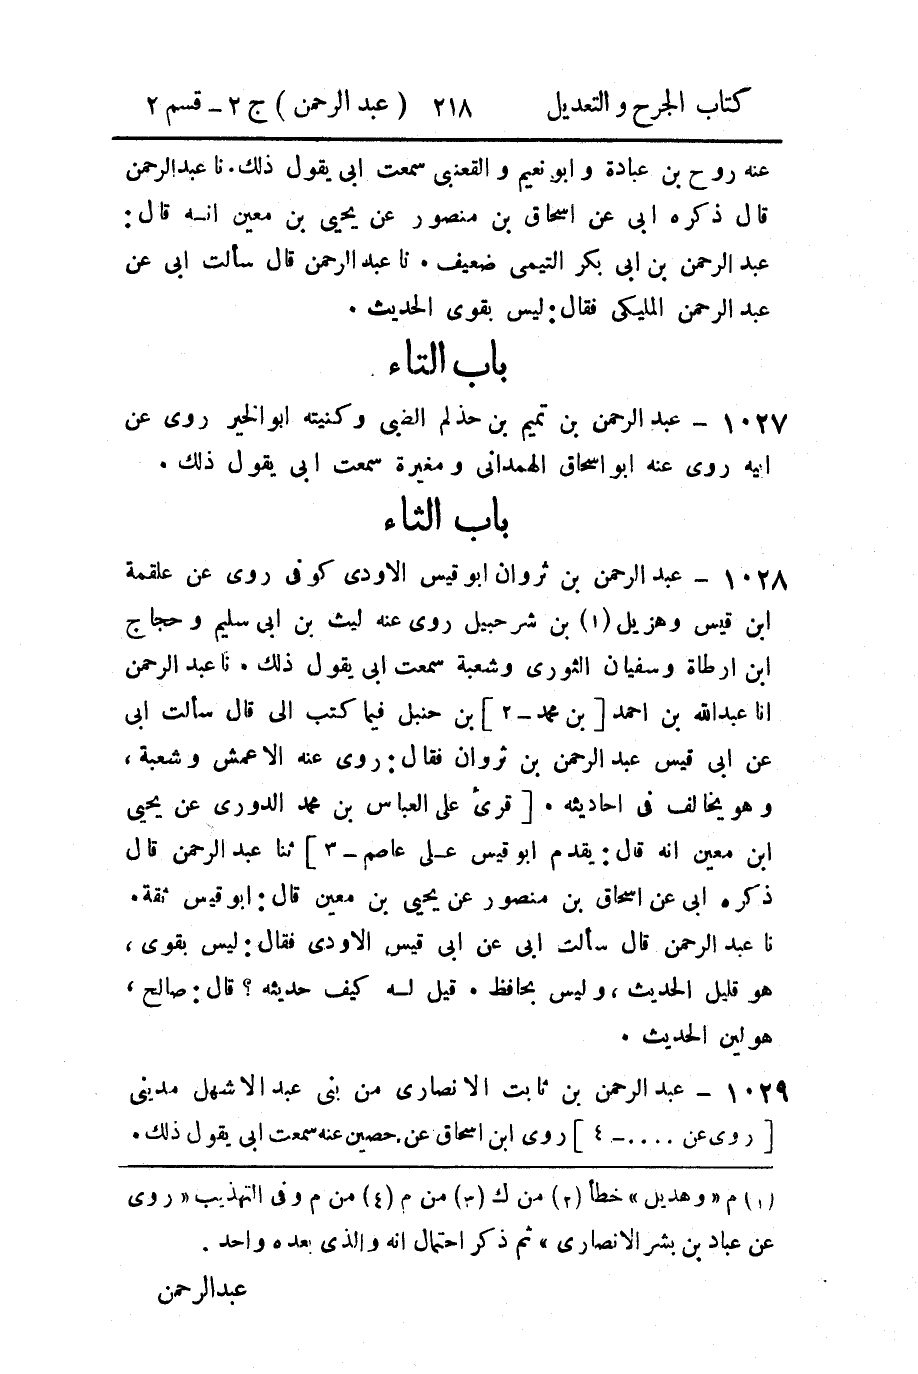 كتاب الجرح والتعديل ٢١٨ (عبد الرحمن) ج ٢ - قسم ٢
عنه روح بن عبادة و ابو نعيم و القعنبي سمعت ابي يقول ذلك. نا عبد الرحمن
قال ذكره ابى عن اسحاق بن منصور عن يحيى بن معين انه قال:
عبد الرحمن بن ابى بكر التيمى ضعيف. نا عبد الرحمن قال سألت ابى عن
عبد الرحمن المليكى فقال: ليس بقوى الحديث.
باب التاء
١٠٢٧ - عبد الرحمن بن تميم بن حذلم الضبى وكنيته ابو الخير روى عن
ابيه روى عنه ابو اسحاق الهمدانى ومغيرة سمعت ابى يقول ذلك.
باب الثاء
١٠٢٨ - عبد الرحمن بن ثروان ابو قيس الاودى كوفى روى عن علقمة
ابن قيس وهزيل (١) بن شرحبيل روى عنه ليث بن ابى سليم وحجاج
ابن ارطاة وسفيان الثورى وشعبة سمعت ابى يقول ذلك. نا عبد الرحمن
انا عبد الله بن احمد [بن محمد - ٢] بن حنبل فيما كتب الى قال سألت ابى
عن ابى قيس عبد الرحمن بن ثروان فقال: روى عنه الاعمش وشعبة،
وهو يخالف فى احاديثه. [قرئ على العباس بن محمد الدورى عن يحيى
ابن معين انه قال: يقدم ابو قيس على عاصم - ٣] ثنا عبد الرحمن قال
ذكره ابى عن اسحاق بن منصور عن يحيى بن معين قال: ابو قيس ثقة.
نا عبد الرحمن قال سألت ابى عن ابى قيس الاودى فقال: ليس بقوى،
هو قليل الحديث، وليس بحافظ. قيل له كيف حديثه؟ قال: صالح،
هو لين الحديث.
١٠٢٩ - عبد الرحمن بن ثابت الانصارى من بنى عبد الاشهل مدينى
[روى عن .... - ٤] روى ابن اسحاق عن حصين عنه سمعت ابى يقول ذلك.
(١) م «وهديل» خطأ (٢) من ك (٣) من م (٤) من م وفى التهذيب «روى
عن عباد بن بشر الانصارى» ثم ذكر احتمال انه والذى بعده واحد.
عبد الرحمن